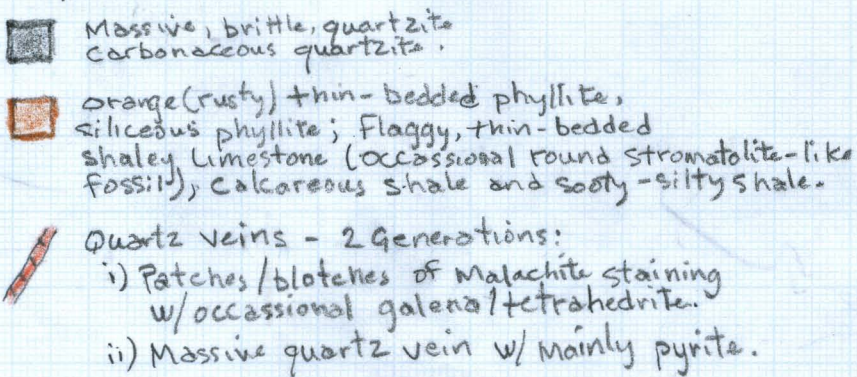 Massive, brittle, quartzite
carbonaceous quartzite.
orange (rusty) thin-bedded phyllite,
siliceous phyllite; Flaggy, thin-bedded
shaley Limestone (occassional round stromatolite-like
fossil), calcareous shale and sooty-silty shale.
Quartz veins - 2 Generations:
i) Patches/blotches of Malachite staining
w/occassional galena/tetrahedrite.
ii) Massive quartz vein w/ mainly pyrite.